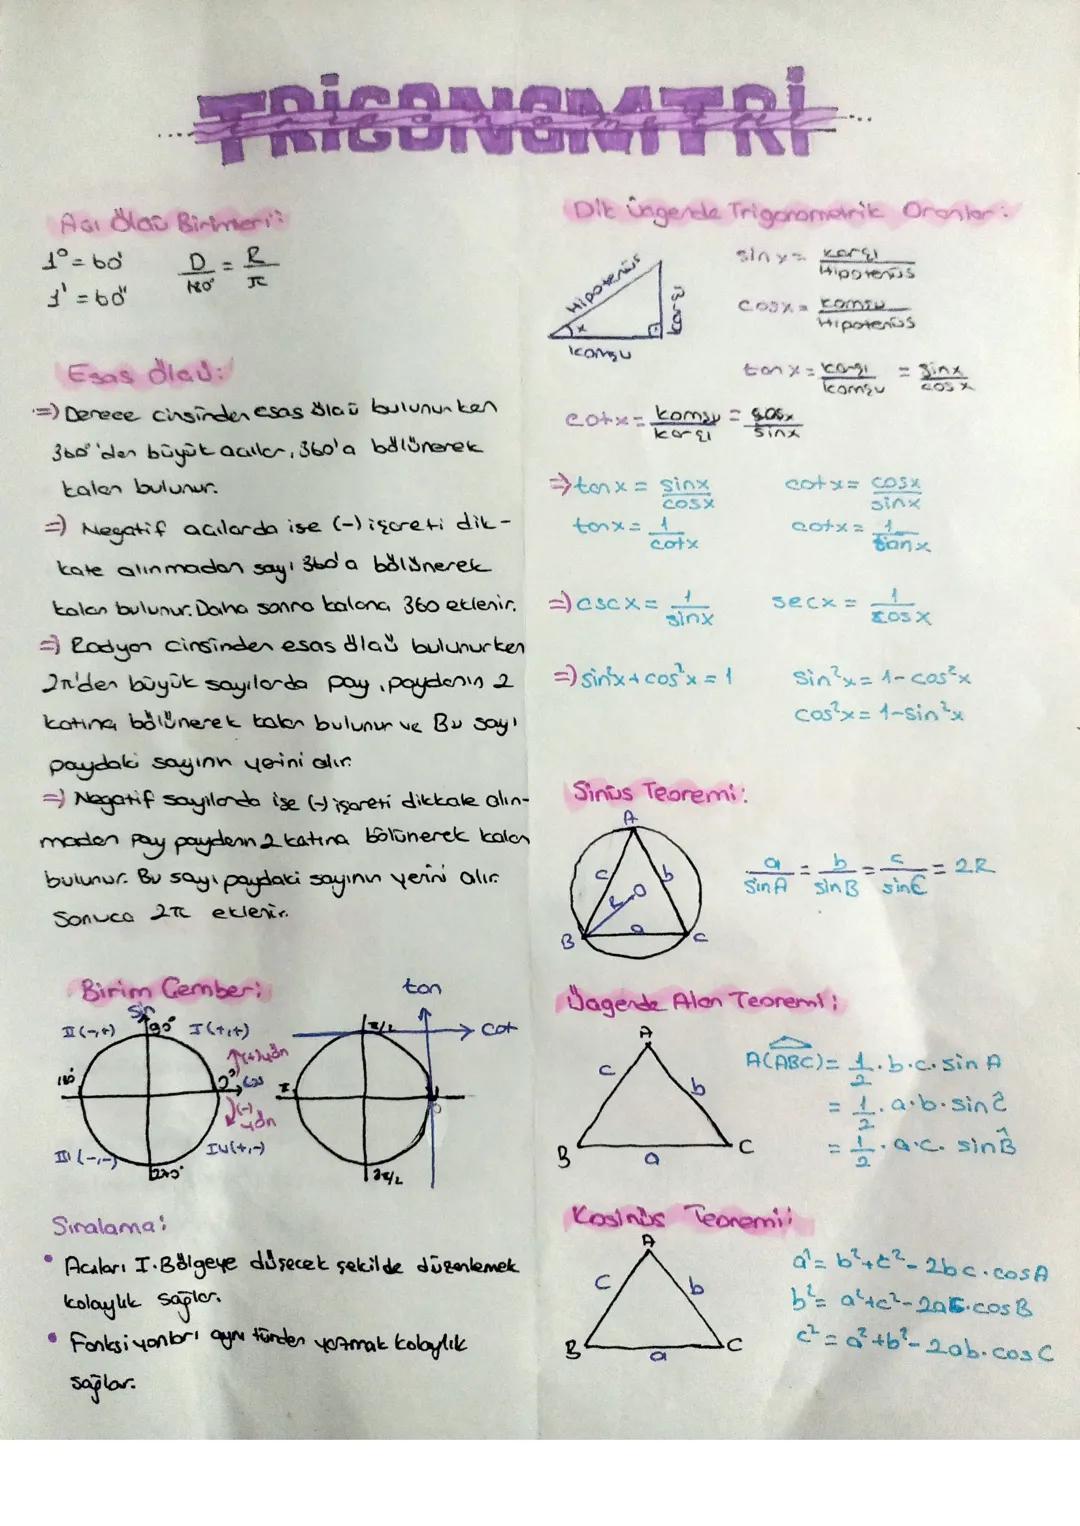 TRİGONOMTRİ
Açı Ölçü Birimleri:
1° = 60'
1' = 60"
D/180° = R/π
Esas Ölçü:
=) Derece cinsinden esas ölçü bulunurken
360°'den büyük açılar, 360'a bölünerek
kalan bulunur.
=) Negatif açılarda ise (-) işareti dik-
kate alınmadan sayı 360'a bölünerek
kalan bulunur. Daha sonra kalana 360 eklenir.
=) Radyan cinsinden esas ölçü bulunurken
2π'den büyük sayılarda pay, paydanın 2
katına bölünerek kalan bulunur ve Bu sayı
paydaki sayının yerini alır.
=) Negatif sayılarda ise (-) işareti dikkate alın-
madan pay paydanın 2 katına bölünerek kalan
bulunur. Bu sayı paydaki sayının yerini alır.
Sonuca 2π eklenir.
Birim Çember:
sin
II (-,+) 90° I (+,+)
(+) yön
180° 0° cos
(-) yön
III (-,-) IV (+,-)
270°
ton
π/2 cot
π 0
3π/2
Sıralama:
• Açıları I. Bölgeye düşecek şekilde düzenlemek
kolaylık sağlar.
• Fonksiyonları aynı türden yazmak kolaylık
sağlar.
Dik Üçgende Trigonometrik Oranlar:
Hipotenüs
karşı
x
komşu
sin x = karşı/Hipotenüs
cos x = komşu/Hipotenüs
tan x = karşı/komşu = sin x/cos x
cot x = komşu/karşı = cos x/sin x
=> tan x = sin x/cos x cot x = cos x/sin x
tan x = 1/cot x cot x = 1/tan x
=) csc x = 1/sin x sec x = 1/cos x
=) sin²x + cos²x = 1 sin²x = 1 - cos²x
cos²x = 1 - sin²x
Sinüs Teoremi:
A
c b
O
B a C
a/sin A = b/sin B = c/sin C = 2R
Üçgende Alan Teoremi:
A
c b
B a C
A(ABC) = 1/2 . b . c . sin A
= 1/2 . a . b . sin Ĉ
= 1/2 . a . c . sin B̂
Kosinüs Teoremi:
A
c b
B a C
a² = b² + c² - 2bc . cos A
b² = a² + c² - 2ac . cos B
c² = a² + b² - 2ab . cos C